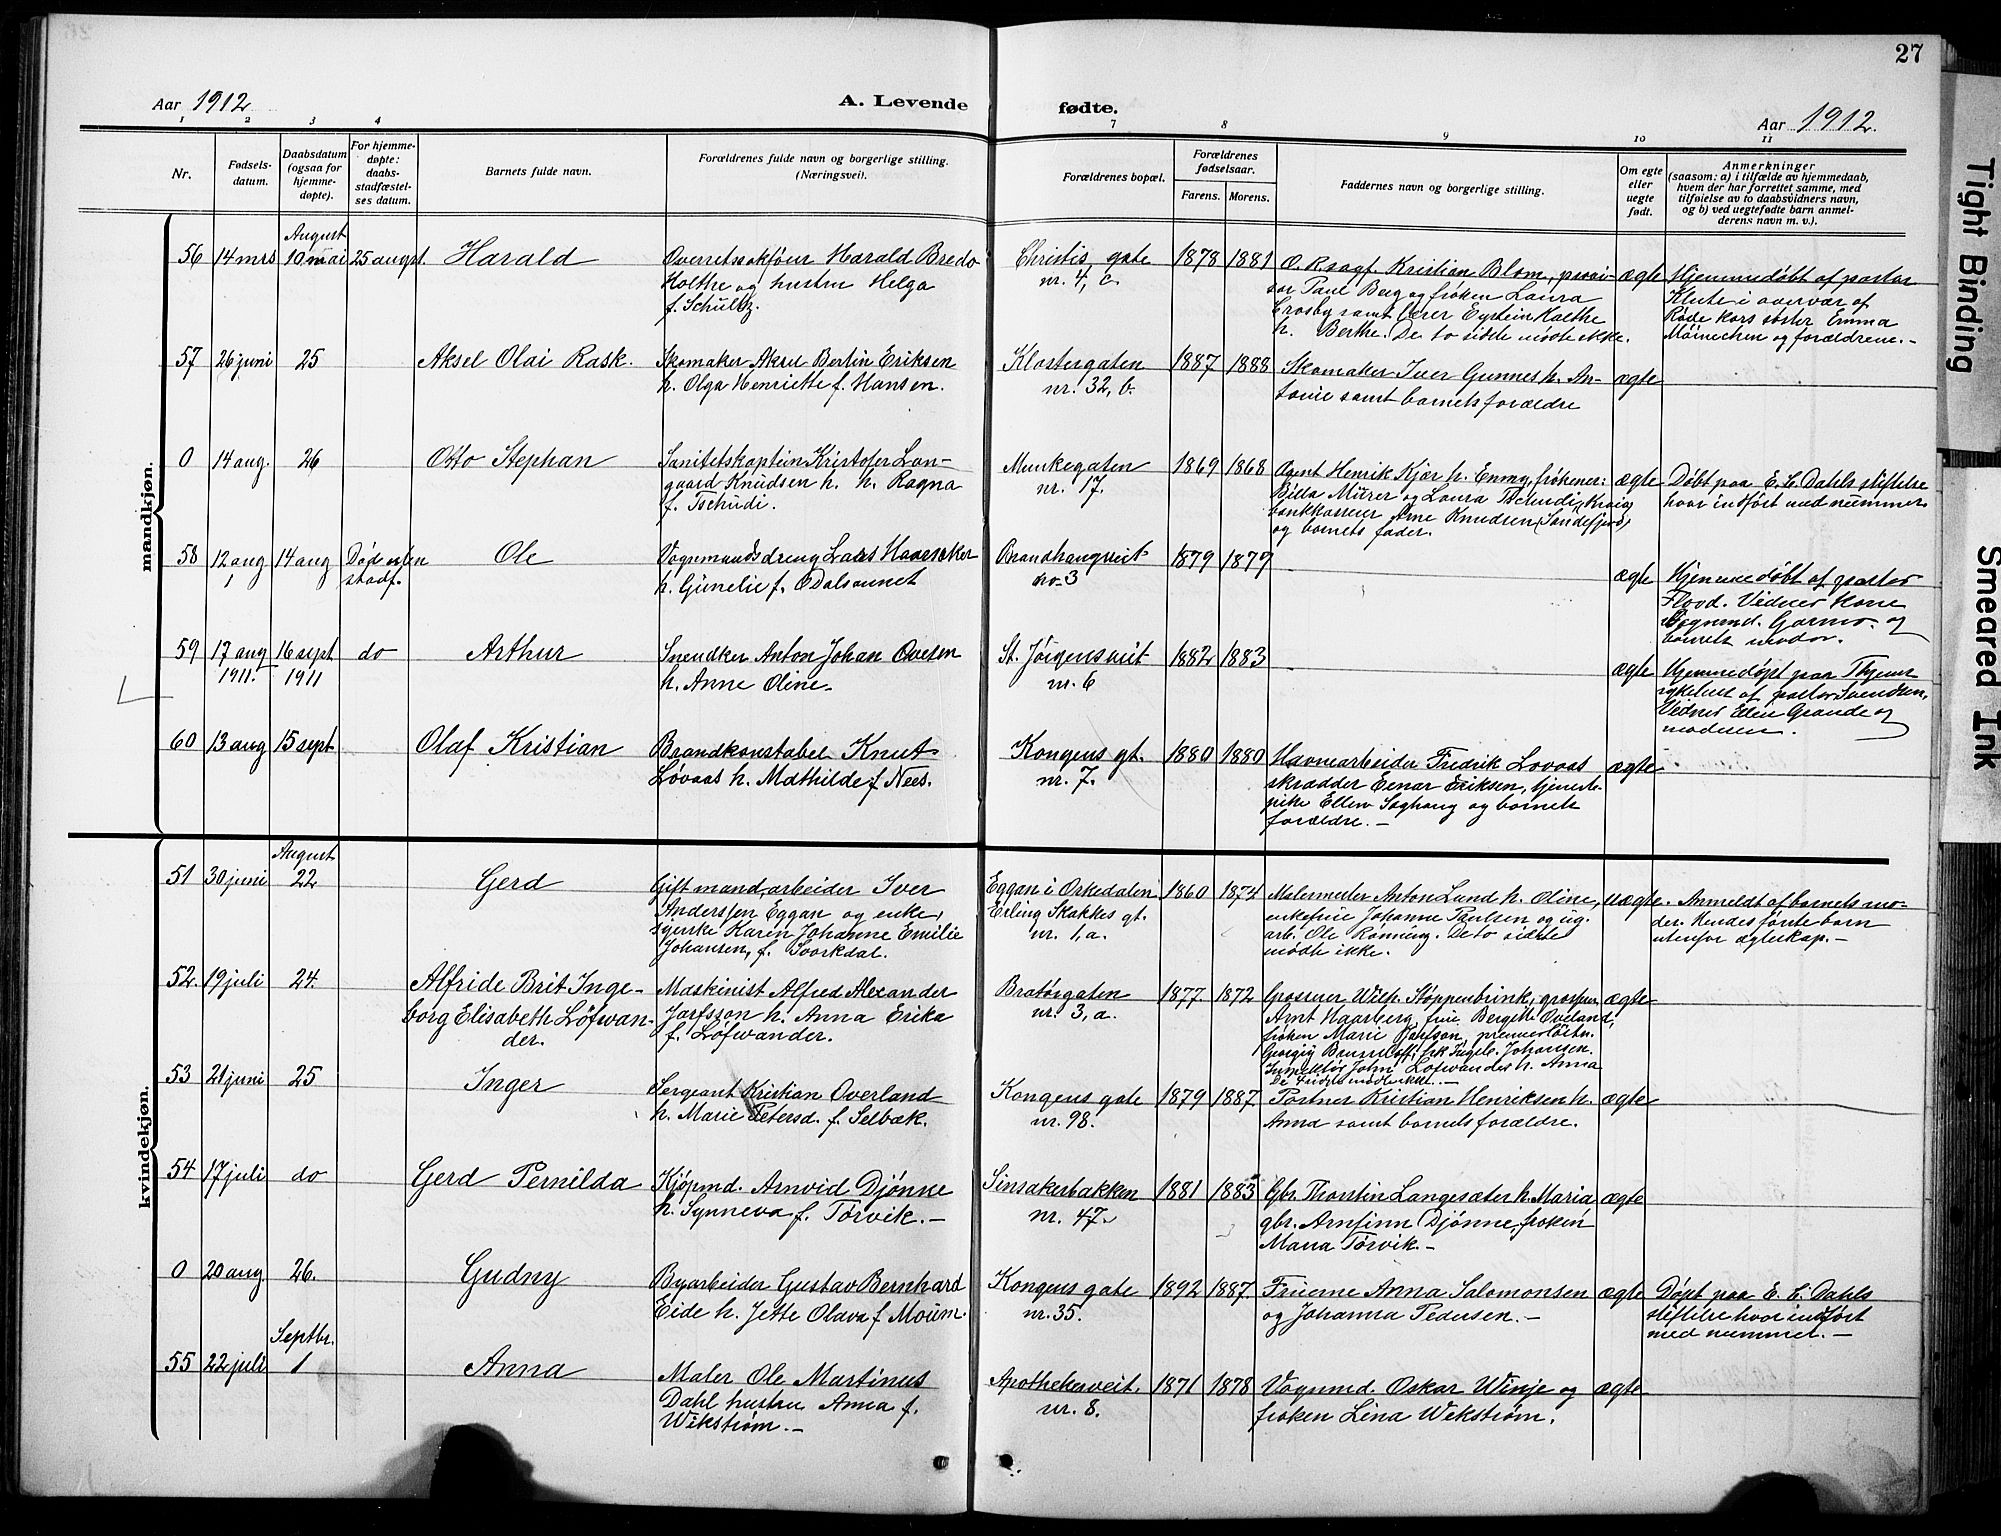 27
Aar 1912
A. Levende
fødte.
Aar 1912.
1 2 3 4 7 8 9 10 11
Nr.
Fødsels-
datum.
Daabsdatum
(ogsaa for
hjemme-
døpte).
For hjemme-
døpte:
daabs-
stadfæstel-
ses datum.
Barnets fulde navn.
Forældrenes fulde navn og borgerlige stilling.
(Næringsvei).
Forældrenes bopæl.
Forældrenes
fødselsaar.
Farens. Morens.
Faddernes navn og borgerlige stilling.
Om egte
eller
uegte
født.
Anmerkninger
(saasom: a) i tilfælde av hjemmedaab,
hvem der har forrettet samme, med
tilføielse av to daabsvidners navn,
og b) ved uegtefødte barn anmel-
derens navn m. v.).
mandkjøn.
August
56 14 mrs 10 mai 25 augst. Harald
Overretssakfører Harald Bredo
Holthe og hustru Helga
f. Schultz.
Christis gate
nr. 4, c.
1878 1881
O. R. sagf. Kristian Blom, provi-
sor Paul Berg og frøken Laura
Crosby samt lærer Eystein Holthe
h. Berthe. De to sidste mødte ikke.
ægte
Hjemmedøbt af pastor
Klute i overvær af
Røde kors søster Emma
Mönnichen og forældrene.-
57 26 juni 25 Aksel Olai Rask.
Skomaker Aksel Bertin Eriksen
h. Olga Henriette f. Hansen.
Klostergaten
nr. 32, b.
1887 1888
Skomaker Iver Gunnes h. An-
tonie samt barnets forældre
ægte
0 14 aug. 26 Otto Stephan
Sanitetskaptein Kristofer Lan-
gaard Knudsen h. h. Ragna
f. Tschudi.
Munkegaten
nr. 17.
1869 1868
Agent Henrik Kjær h. Emmy, frøkener:
Billa Mürer og Laura Tschudi,
bankkasserer Arne Knudsen, Sandefjord,
og barnets fader.
ægte
Døbt paa E. C. Dahls stiftelse
hvor indført med nummer
58 12 aug 14 aug Død uden
stadf.
Ole
Vognmandsdreng Lars Haavesaker
h. Gunelie f. Odalsaunet
Brandhaugveit
no. 3
1879 1879
ægte
Hjemmedøbt af pastor
Flood. Vidner Kone
Rognmd. Garmo og
barnets moder.
59 17 aug
1911.
16 sept
1911
do Arthur
Snendker Anton Johan Ovesen
h. Anne Oline.
St. Jörgensveit
nr. 6
1882 1883
ægte
Hjemmedøpt paa Thjems
sykehus af pastor Svendsen,
Vidner Ellen Grande og
moderen.
60 13 aug 15 sept Olaf Kristian
Brandkonstabel Knut
Løvaas h. Mathilde f. Nees.
Kongens gt.
nr. 7.
1880 1880
Havnearbeider Fredrik Lovaas
skrædder Einar Eriksen, tjeneste-
pike Ellen Soghaug og barnets
forældre.-
ægte
kvindekjøn.
August
51 30 juni 22 Gerd
Gift mand, arbeider Iver
Anderssen Eggan og enke,
syerske Karen Johanne Emilie
Johansen, f. Soorkdal.
Eggan i Orkedalen
Erling Skakkes gt.
nr. 1, a.
1860 1874
Malermester Anton Lund h. Oline,
enkefrue Johanne Paulsen og ug.
arb. Ole Rönning. De to sidste
mødte ikke.
uægte.
Anmeldt af barnets mo-
der. Hendes fjønte barn
utenfor ægteskap.-
52. 19 juli 24. Alfride Brit Inge-
borg Elisabeth Løfwan-
der.
Maskinist Alfred Alexander
Jarfsson h. Anna Erika
f. Løfwander.
Bratørgaten
nr. 3, a.
1877 1872
Grosserer Wilh. Stoppenbrink, grosserer
Arnt Haarberg, frue Bergitte Oveland,
frøken Marie Jarfsson, premierløitn.
Georgig Johansen.
Inspektør John Löfwander h. Anna
ægte
53 21 juni 25 Inger
Sergeant Kristian Overland
h. Marie Petersd. f. Selbæk.
Kongens gate
nr. 98.
1879 1887
Portner Kristian Henriksen h.
Anna samt barnets forældre.
ægte
54 17 juli do Gerd Pernilda
Kjøpmd. Arnvid Djønne
h. Synneva f. Tørvik.-
Sinsakerbakken
nr. 47.
1881 1883
Gbr. Thorstin Langesæter h. Maria
gbr. Arnfinn Djønne, frøken
Maria Tørvik.-
ægte
0 20 aug. 26. Gudny
Byarbeider Gustav Bernhard
Eide h. Jette Olava f. Moum.
Kongens gate
nr. 35.
1892 1887
Fruerne Anna Salomonsen
og Johanna Pedersen.-
ægte
Døpt paa E. C. Dahls
stiftelse hvor indført
med nummer.-
Septbr.
55 22 juli 1 Anna
Maler Ole Martinus
Dahl hustru Anna f.
Wikstrøm.-
Apothekerveit.
nr. 8.
1871 1878
Vognmd. Oskar Winje og
frøken Lina Wekstrøm.
ægte
Tight Binding
Smeared Ink